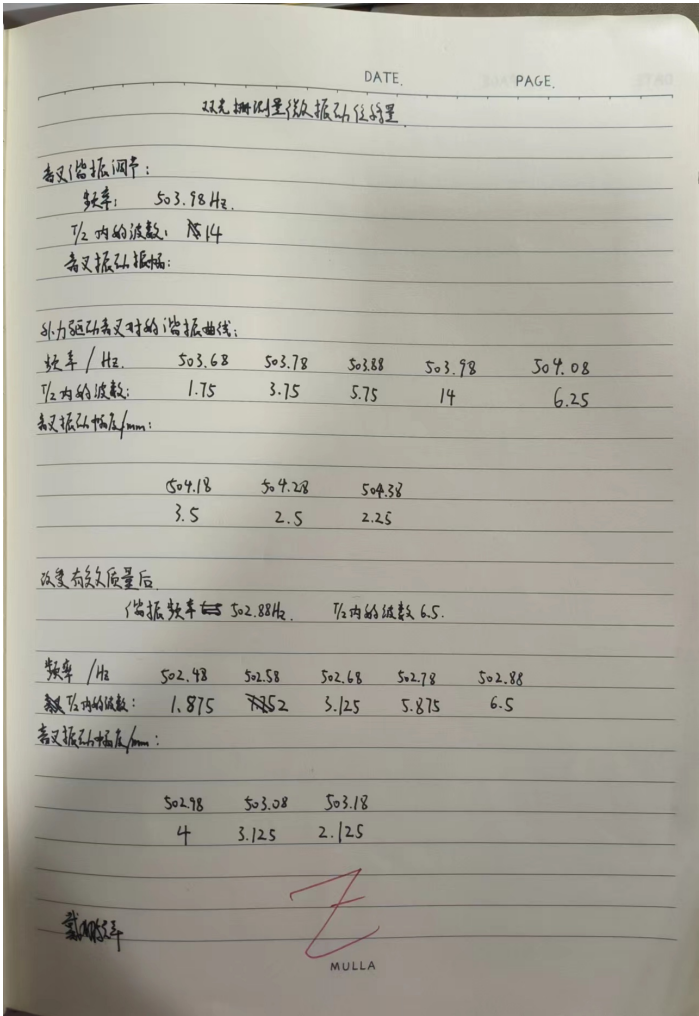 DATE. PAGE.
双光栅测量微振动位移量
音叉谐振调节:
频率: 503.98Hz.
T/2内的波数: 14
音叉振动振幅:
外力驱动音叉时的谐振曲线:
频率/Hz. 503.68 503.78 503.88 503.98 504.08
T/2内的波数: 1.75 3.75 5.75 14 6.25
音叉振动幅度/mm:
504.18 504.28 504.38
3.5 2.5 2.25
改变有效质量后
谐振频率 502.88Hz. T/2内的波数 6.5.
频率/Hz 502.48 502.58 502.68 502.78 502.88
T/2内的波数: 1.875 2 3.125 5.875 6.5
音叉振动幅度/mm:
502.98 503.08 503.18
4 3.125 2.125
MULLA